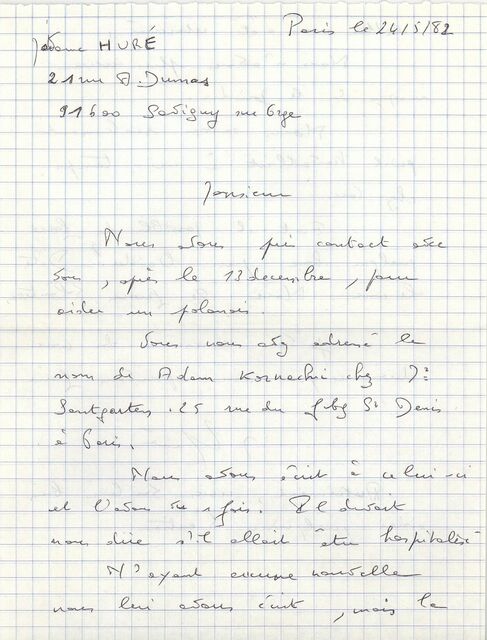 Paris le 24/5/82
Madame HURÉ
21 rue A. Dumas
91600 Savigny sur Orge
Monsieur
Nous avons pris contact avec
vous, après le 13 decembre, pour
aider un polonais.
Vous nous avez adressé le
nom de Adam Kornachi chez Mr
25 rue du fbg St Denis
à Paris.
Nous avons écrit à celui-ci
et l'avons vu 1 fois. Il devait
nous dire s'il allait être hospitalisé
N'ayant aucune nouvelle
nous lui avons écrit, mais la